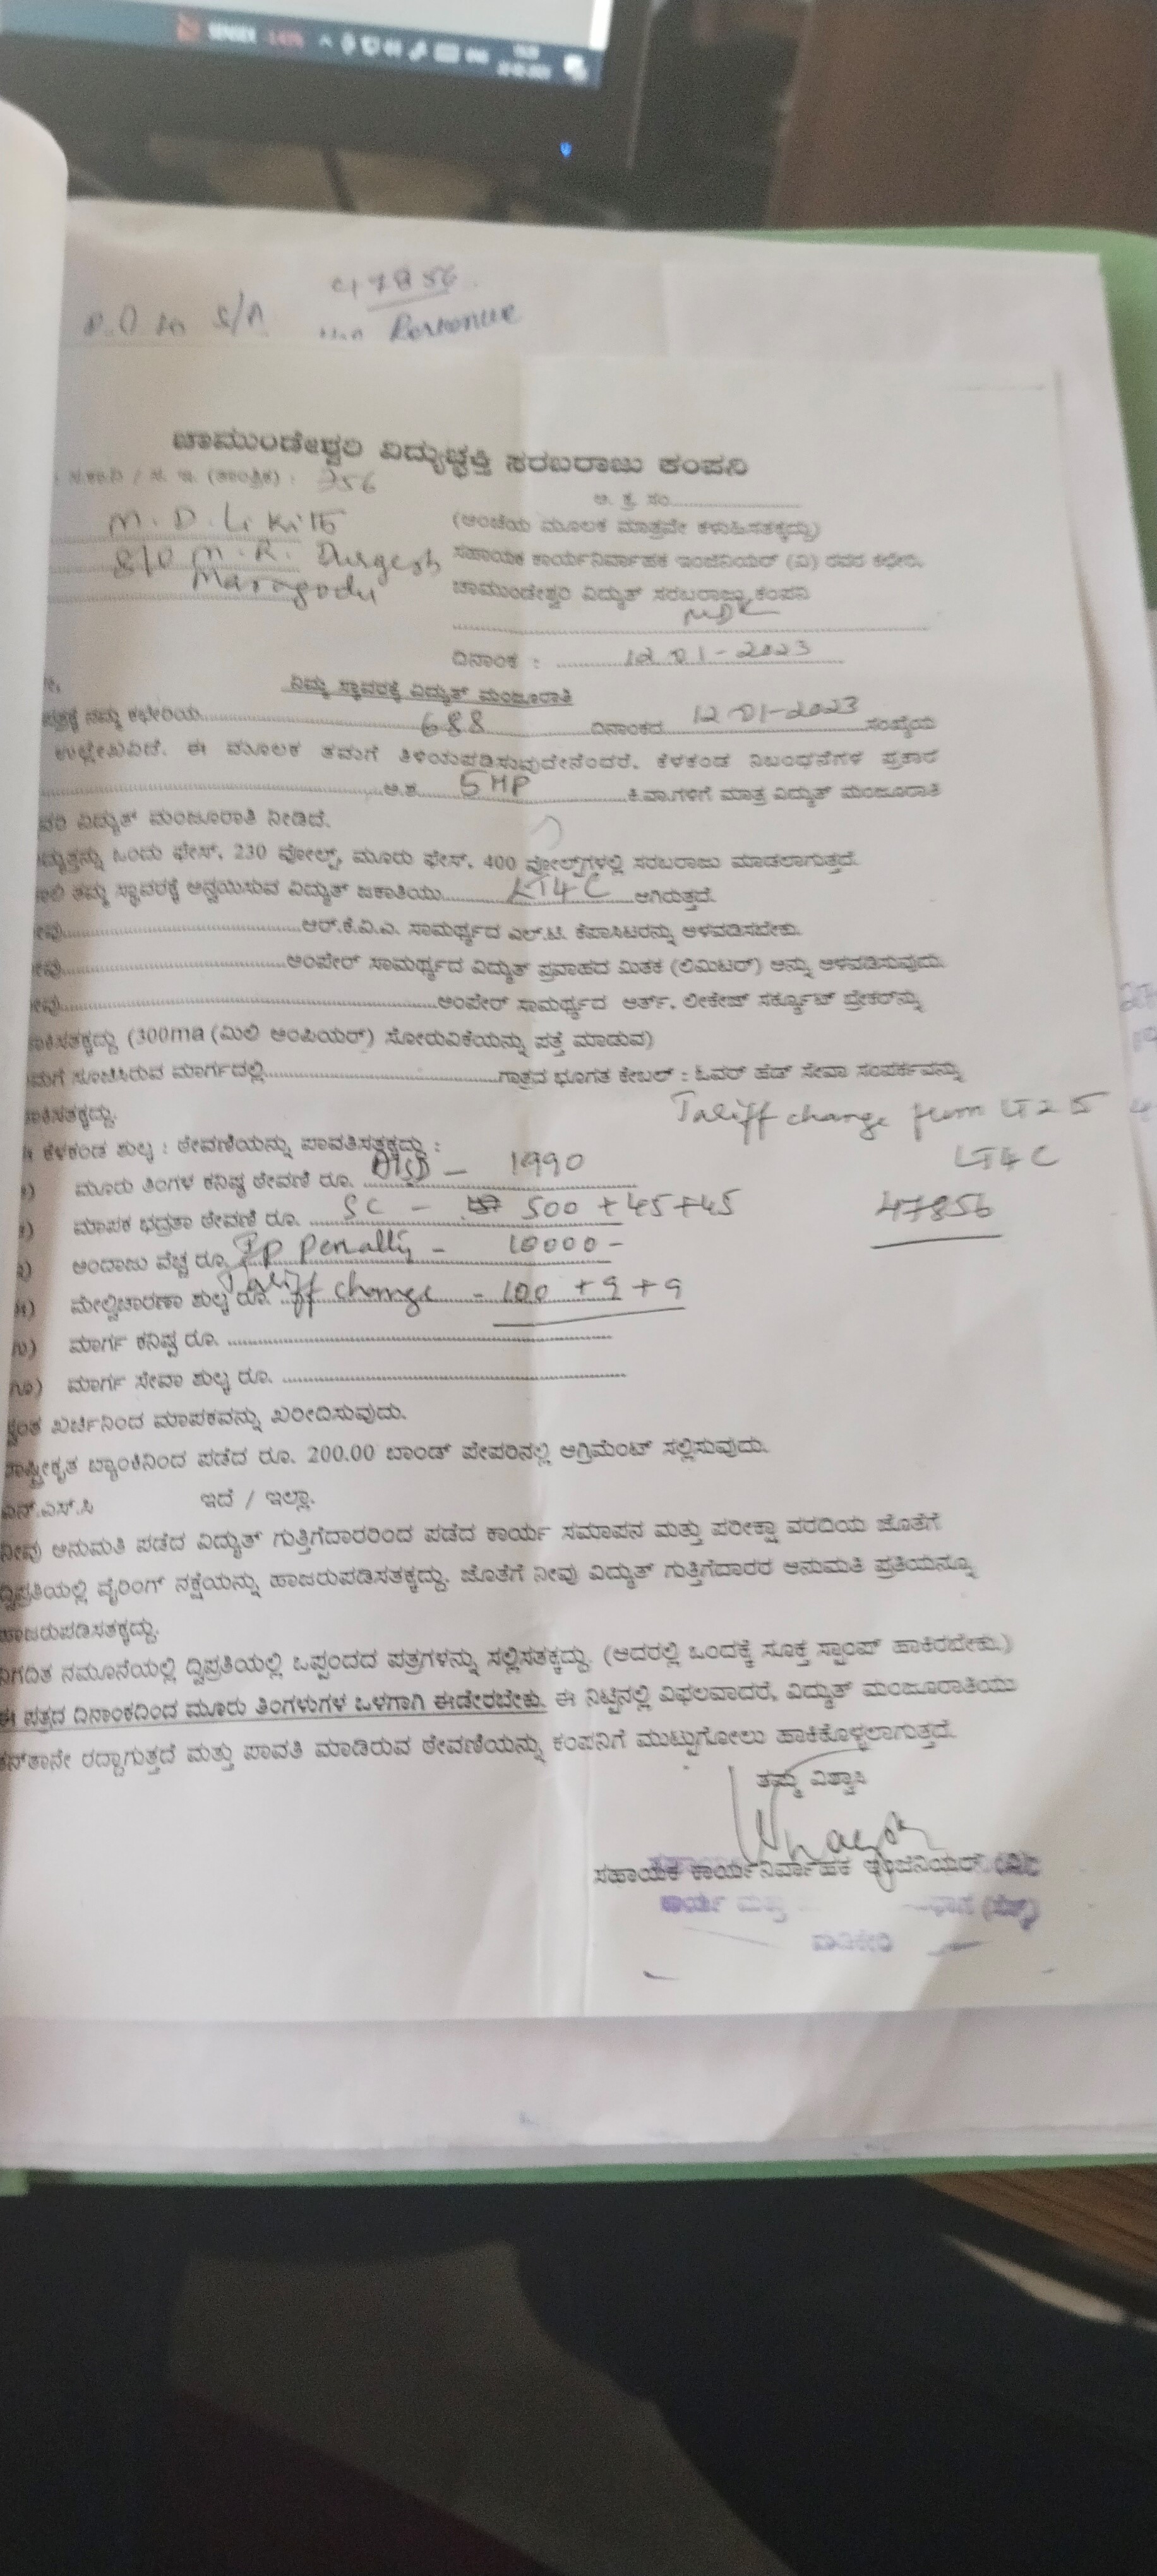 SENSEX
ENG
47856
P.O to S/A
Revenue
ಚಾಮುಂಡೇಶ್ವರಿ ವಿದ್ಯುಚ್ಛಕ್ತಿ ಸರಬರಾಜು ಕಂಪನಿ
(ತಾಂತ್ರಿಕ) : 256
ಆ. ಕ್ರ. ಸಂ
M. D. Likith
(ಅಂಚೆಯ ಮೂಲಕ ಮಾತ್ರವೇ ಕಳುಹಿಸತಕ್ಕದ್ದು)
S/O M. R. Durgesh
ಸಹಾಯಕ ಕಾರ್ಯನಿರ್ವಾಹಕ ಇಂಜಿನಿಯರ್ (ವಿ) ರವರ ಕಛೇರಿ,
Maragodu
ಚಾಮುಂಡೇಶ್ವರಿ ವಿದ್ಯುತ್ ಸರಬರಾಜು ಕಂಪನಿ
MDK
ದಿನಾಂಕ : 12-01-2023
ನಿಮ್ಮ ಸ್ಥಾವರಕ್ಕೆ ವಿದ್ಯುತ್ ಮಂಜೂರಾತಿ
ಪತ್ರಕ್ಕೆ ನಮ್ಮ ಕಛೇರಿಯ 688 ದಿನಾಂಕದ 12-01-2023 ಸಂಖ್ಯೆಯ
ಉಲ್ಲೇಖವಿದೆ. ಈ ಮೂಲಕ ತಮಗೆ ತಿಳಿಯಪಡಿಸುವುದೇನೆಂದರೆ, ಕೆಳಕಂಡ ನಿಬಂಧನೆಗಳ ಪ್ರಕಾರ
ಅ.ಶ. 5HP ಕಿ.ವಾ.ಗಳಿಗೆ ಮಾತ್ರ ವಿದ್ಯುತ್ ಮಂಜೂರಾತಿ
ವಿದ್ಯುತ್ ಮಂಜೂರಾತಿ ನೀಡಿದೆ.
ಒಂದು ಫೇಸ್, 230 ವೋಲ್ಟ್, ಮೂರು ಫೇಸ್, 400 ವೋಲ್ಟ್‌ಗಳಲ್ಲಿ ಸರಬರಾಜು ಮಾಡಲಾಗುತ್ತದೆ.
ತಮ್ಮ ಸ್ಥಾವರಕ್ಕೆ ಅನ್ವಯಿಸುವ ವಿದ್ಯುತ್ ಜಕಾತಿಯು LT4C ಆಗಿರುತ್ತದೆ.
ಆರ್.ಕೆ.ವಿ.ಎ. ಸಾಮರ್ಥ್ಯದ ಎಲ್.ಟಿ. ಕೆಪಾಸಿಟರನ್ನು ಅಳವಡಿಸಬೇಕು.
ಅಂಪೇರ್ ಸಾಮರ್ಥ್ಯದ ವಿದ್ಯುತ್ ಪ್ರವಾಹದ ಮಿತಕ (ಲಿಮಿಟರ್) ಅನ್ನು ಅಳವಡಿಸುವುದು.
ಅಂಪೇರ್ ಸಾಮರ್ಥ್ಯದ ಅರ್ತ್, ಲೀಕೇಜ್ ಸರ್ಕ್ಯೂಟ್ ಬ್ರೇಕರ್‌ನ್ನು
(300ma (ಮಿಲಿ ಅಂಪಿಯರ್) ಸೋರುವಿಕೆಯನ್ನು ಪತ್ತೆ ಮಾಡುವ)
ಸೂಚಿಸಿರುವ ಮಾರ್ಗದಲ್ಲಿ ಗಾತ್ರದ ಭೂಗತ ಕೇಬಲ್ : ಓವರ್ ಹೆಡ್ ಸೇವಾ ಸಂಪರ್ಕವನ್ನು
Tariff change from LT25
ಕೆಳಕಂಡ ಶುಲ್ಕ : ಠೇವಣಿಯನ್ನು ಪಾವತಿಸತಕ್ಕದ್ದು :
LT4C
ಮೂರು ತಿಂಗಳ ಕನಿಷ್ಠ ಠೇವಣಿ ರೂ. MSD - 1990
ಮಾಪಕ ಭದ್ರತಾ ಠೇವಣಿ ರೂ. SC - 500 + 45 + 45
47856
ಅಂದಾಜು ವೆಚ್ಚ ರೂ. Ip Penalty - 10000 -
ಮೇಲ್ವಿಚಾರಣಾ ಶುಲ್ಕ ರೂ. Tariff change - 100 + 9 + 9
ಮಾರ್ಗ ಕನಿಷ್ಠ ರೂ.
ಮಾರ್ಗ ಸೇವಾ ಶುಲ್ಕ ರೂ.
ಖರ್ಚಿನಿಂದ ಮಾಪಕವನ್ನು ಖರೀದಿಸುವುದು.
ಬ್ಯಾಂಕಿನಿಂದ ಪಡೆದ ರೂ. 200.00 ಬಾಂಡ್ ಪೇಪರಿನಲ್ಲಿ ಅಗ್ರಿಮೆಂಟ್ ಸಲ್ಲಿಸುವುದು.
ಎನ್.ಎಸ್.ಸಿ ಇದೆ / ಇಲ್ಲಾ.
ನೀವು ಅನುಮತಿ ಪಡೆದ ವಿದ್ಯುತ್ ಗುತ್ತಿಗೆದಾರರಿಂದ ಪಡೆದ ಕಾರ್ಯ ಸಮಾಪನ ಮತ್ತು ಪರೀಕ್ಷಾ ವರದಿಯ ಜೊತೆಗೆ
ದ್ವಿಪ್ರತಿಯಲ್ಲಿ ವೈರಿಂಗ್ ನಕ್ಷೆಯನ್ನು ಹಾಜರುಪಡಿಸತಕ್ಕದ್ದು. ಜೊತೆಗೆ ನೀವು ವಿದ್ಯುತ್ ಗುತ್ತಿಗೆದಾರರ ಅನುಮತಿ ಪ್ರತಿಯನ್ನೂ
ಹಾಜರುಪಡಿಸತಕ್ಕದ್ದು.
ನಿಗದಿತ ನಮೂನೆಯಲ್ಲಿ ದ್ವಿಪ್ರತಿಯಲ್ಲಿ ಒಪ್ಪಂದದ ಪತ್ರಗಳನ್ನು ಸಲ್ಲಿಸತಕ್ಕದ್ದು. (ಅದರಲ್ಲಿ ಒಂದಕ್ಕೆ ಸೂಕ್ತ ಸ್ಟಾಂಪ್ ಹಾಕಿರಬೇಕು.)
ಈ ಪತ್ರದ ದಿನಾಂಕದಿಂದ ಮೂರು ತಿಂಗಳುಗಳ ಒಳಗಾಗಿ ಈಡೇರಬೇಕು. ಈ ನಿಟ್ಟಿನಲ್ಲಿ ವಿಫಲವಾದರೆ, ವಿದ್ಯುತ್ ಮಂಜೂರಾತಿಯು
ರದ್ದಾಗುತ್ತದೆ ಮತ್ತು ಪಾವತಿ ಮಾಡಿರುವ ಠೇವಣಿಯನ್ನು ಕಂಪನಿಗೆ ಮುಟ್ಟುಗೋಲು ಹಾಕಿಕೊಳ್ಳಲಾಗುತ್ತದೆ.
ತಮ್ಮ ವಿಶ್ವಾಸಿ
ಸಹಾಯಕ ಕಾರ್ಯನಿರ್ವಾಹಕ ಇಂಜಿನಿಯರ್ (ವಿ)
ಕಾರ್ಯ ಮತ್ತು
ಮಡಿಕೇರಿ